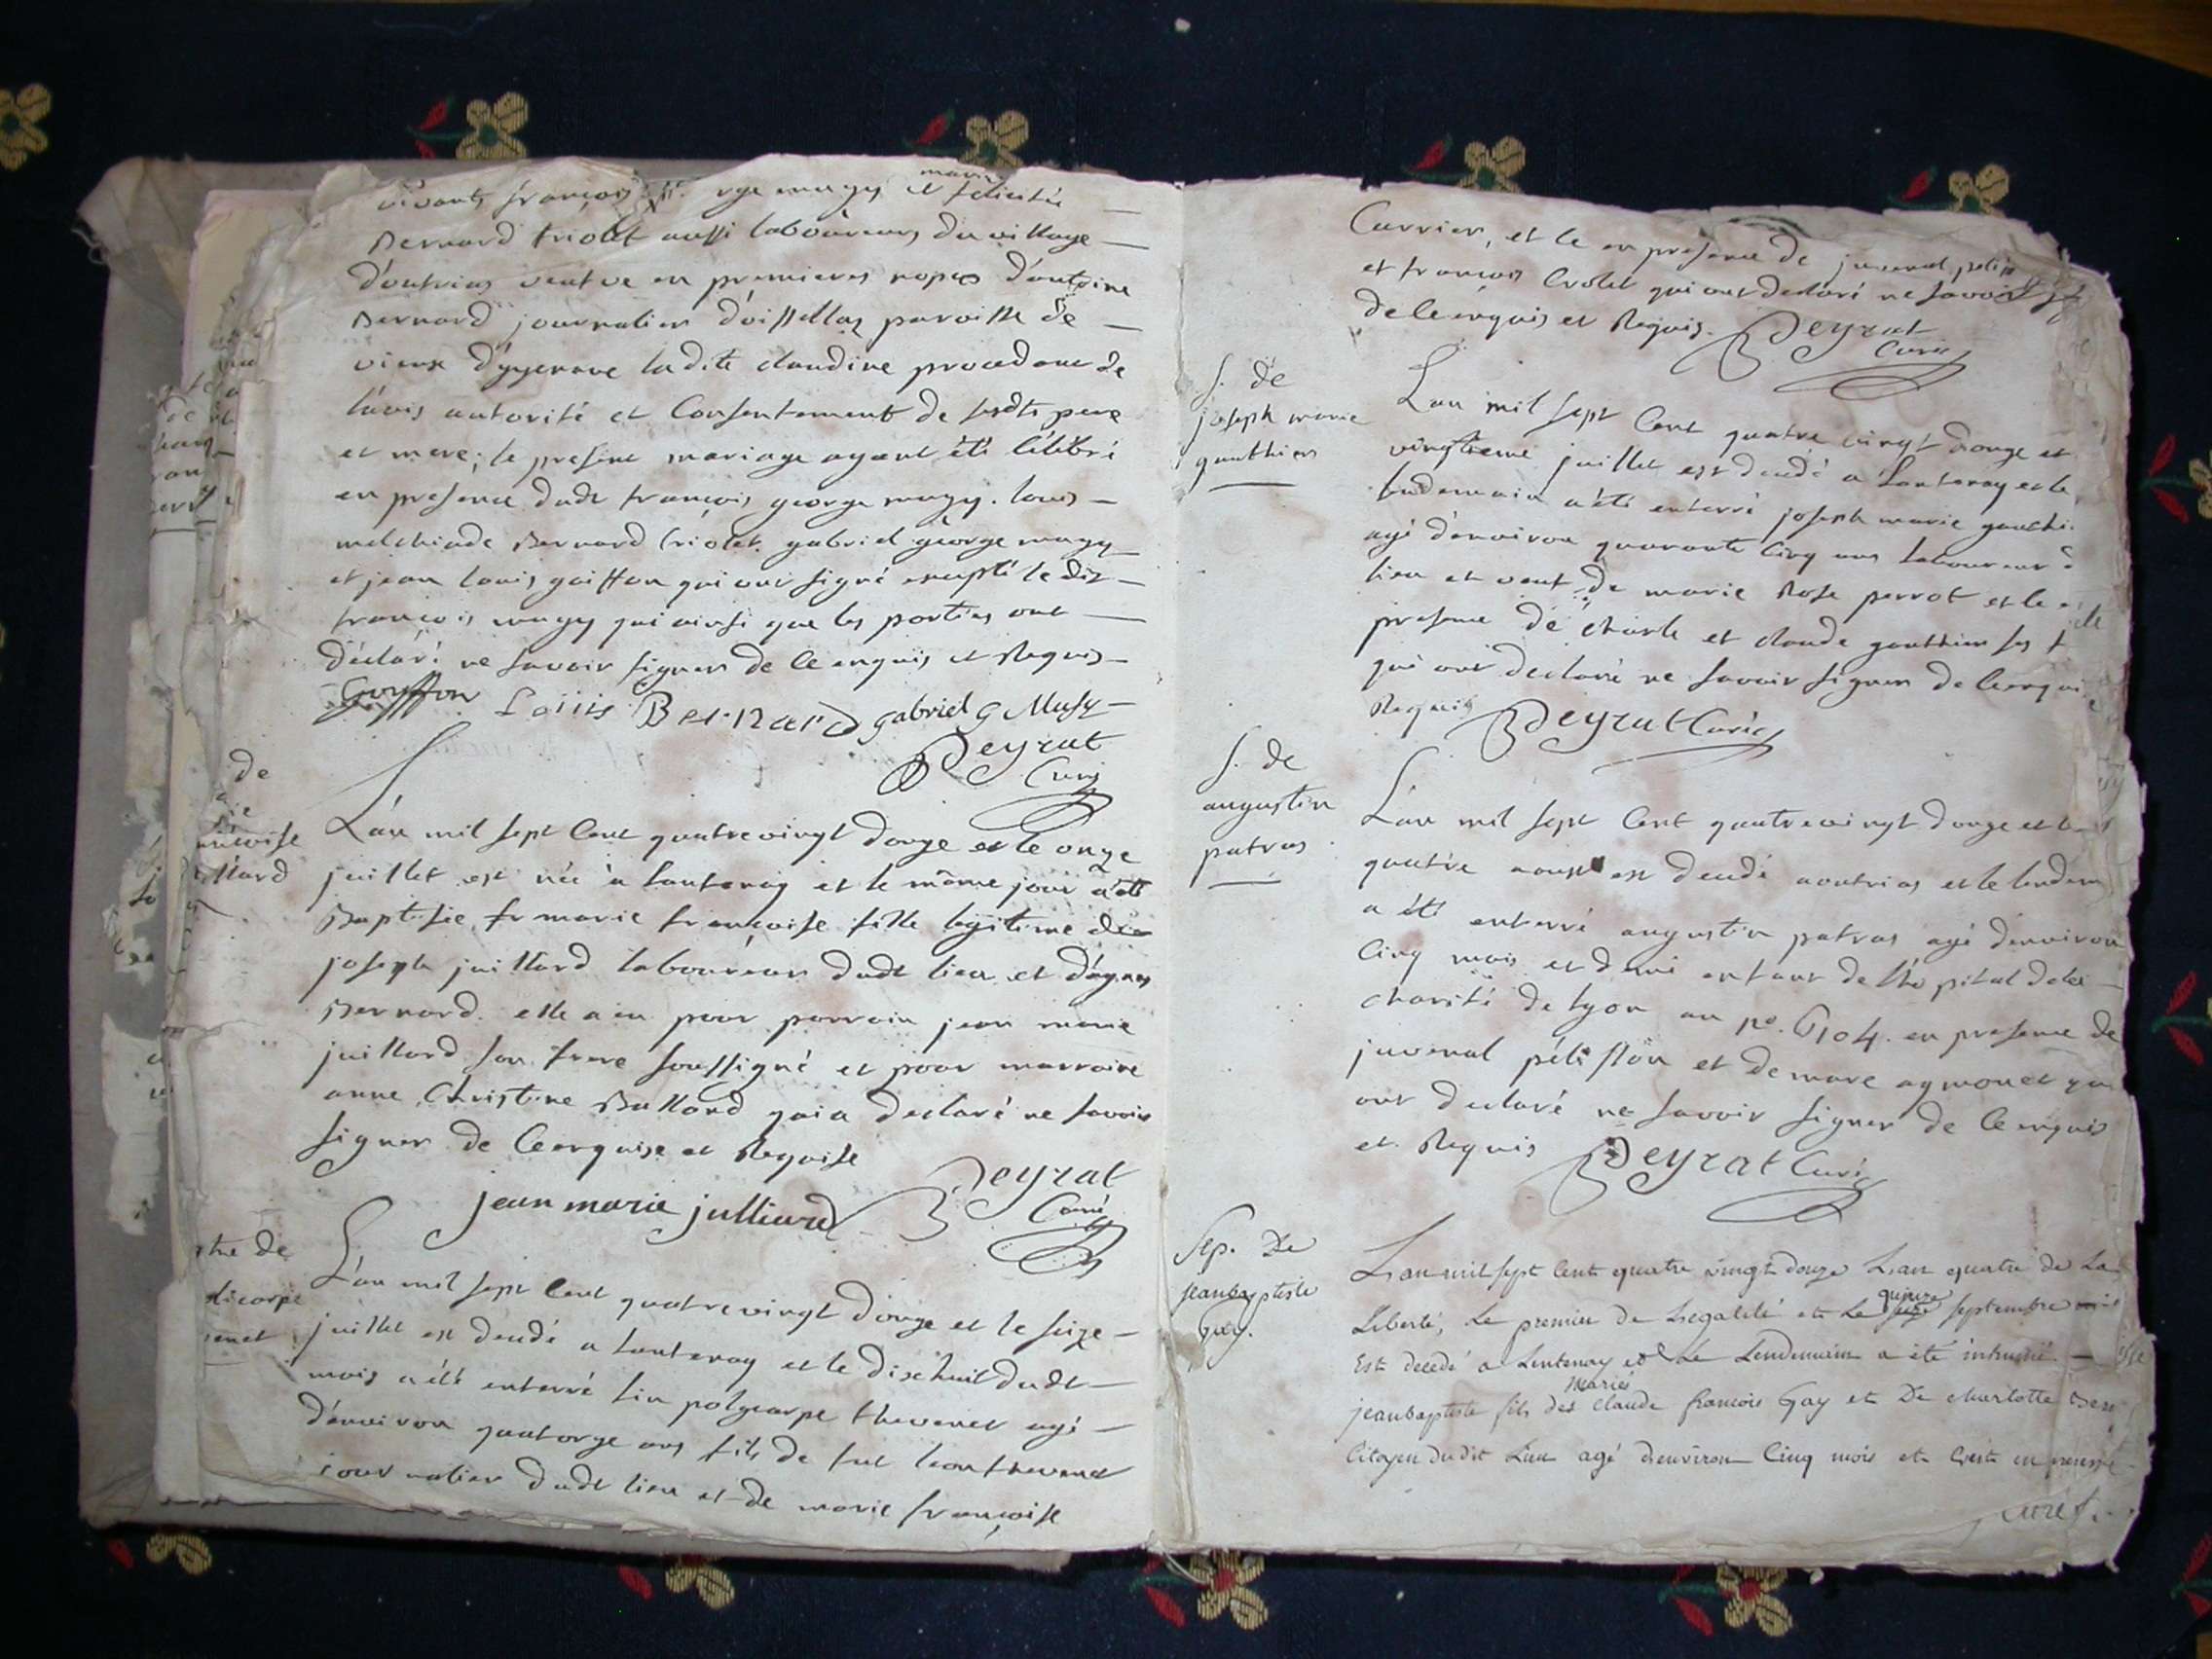 vivants françois george mugy et marie felicitée
Bernard triolet aussi laboureurs du village
d'outrias veut ve en premieres nopces d'antoine
Bernard journalier d'oissellaz paroisse de
vieux d'yzenave ladite claudine procedant de
l'avis autorité et Consentement de sesdts pere
et mere; le present mariage ayant été célébré
en presence dudt françois george mugy. louis
melchiade Bernard triolet. gabriel george mugy
et jean louis goiffon qui ont signé excepté le dit
françois mugy qui ainsi que les parties ont
déclaré ne savoir signer de ce enquis et Requis
Goyffon Loüis Bernard gabriel g Musy
Deyrat
Curé
de
nçoise
illard
L'an mil sept cent quatrevingt douze et le onze
juillet est née à lantenay et le même jour a été
Baptisée marie françoise fille legitime de
joseph juillard laboureur dudt lieu et d'agnes
Bernard. elle a eu pour parrain jean marie
juillard son frere soussigné et pour marraine
anne Christine Ballard qui a declaré ne savoir
signer de ce enquise et Requise
Deyrat
jean marie julliard Curé
L'an mil sept cent quatrevingt douze et le seize
juillet est decedé a lantenay et le dix huit dudt
mois a été enterré polycarpe thevenet agé
d'environ quatorze ans fils de feu leon thevenet
journalier dudt lieu et de marie françoise
Currier, et ce en presence de juvenal
et françois triolet qui ont declaré ne savoir
de ce enquis et Requis. Deyrat
Curé
s. de
joseph marie
gauthier
L'an mil sept cent quatre vingt douze et
vingtieme juillet est decedé a Lantenay et le
lendemain a été enterré joseph marie gauthi
agé d'environ quarante cinq ans laboureur d
lieu et veuf de marie Rose perrot et ce
presence de charle et claude gauthier ses f
qui ont declaré ne savoir signer de ce enqui
Requis Deyrat Curé
s. de
augustin
patras
L'an mil sept cent quatrevingt douze et le
quatre aoust est decedé a outrias et le lendem
a été enterré augustin patras agé d'environ
cinq mois et demi enfant de l'hopital de la
charité de lyon au no. 6104. en presence de
juvenal pélisson et de marc aymonet qui
ont declaré ne savoir signer de ce enquis
et Requis Deyrat Curé
Sep. De
jeanbaptiste
Gay.
L'an mil sept cent quatre vingt douze L'an quatre de La
Liberté, Le premier de L'egalité et Le quinze septembre
Est decedé a Lentenay et Le Lendemain a été inhumé
jeanbaptiste fils des mariés claude françois Gay et De charlotte
Citoyen dudit Lieu agé d'environ Cinq mois et C'est en presence